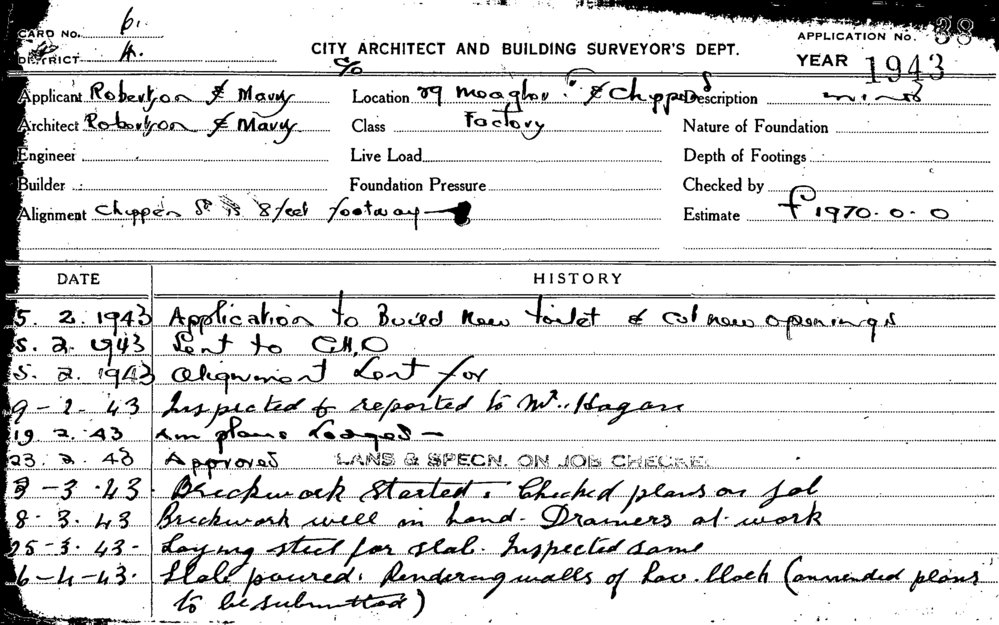 CARD No. 6.
DISTRICT 4.
CITY ARCHITECT AND BUILDING SURVEYOR'S DEPT.
APPLICATION No. 38
YEAR 1943
c/o
Applicant Robertson & Location 29 & Chippen St Description minor
Architect Robertson & Class Factory Nature of Foundation
Engineer Live Load Depth of Footings
Builder Foundation Pressure Checked by
Alignment Chippen St is 8 feet footway Estimate £1970.0.0
DATE HISTORY
5. 2. 1943 Application to Build new toilet & cut new openings
5. 2. 1943 Sent to C.H.O
5. 2. 1943 Alignment Sent for
9 - 2. 43 Inspected & reported to Mr. Hagan
19 2. 43 Am plans Lodged -
23. 2. 43 Approved LANS & SPECN. ON JOB CHECKE.
2 - 3. 43. Brickwork Started. Checked plans on job
8. 3. 43 Brickwork well in hand. Drainers at work
25 - 3. 43 - Laying steel for slab. Inspected same
6 - 4 - 43. Slab poured. Rendering walls of Lav. block (ammended plans
to be submitted)